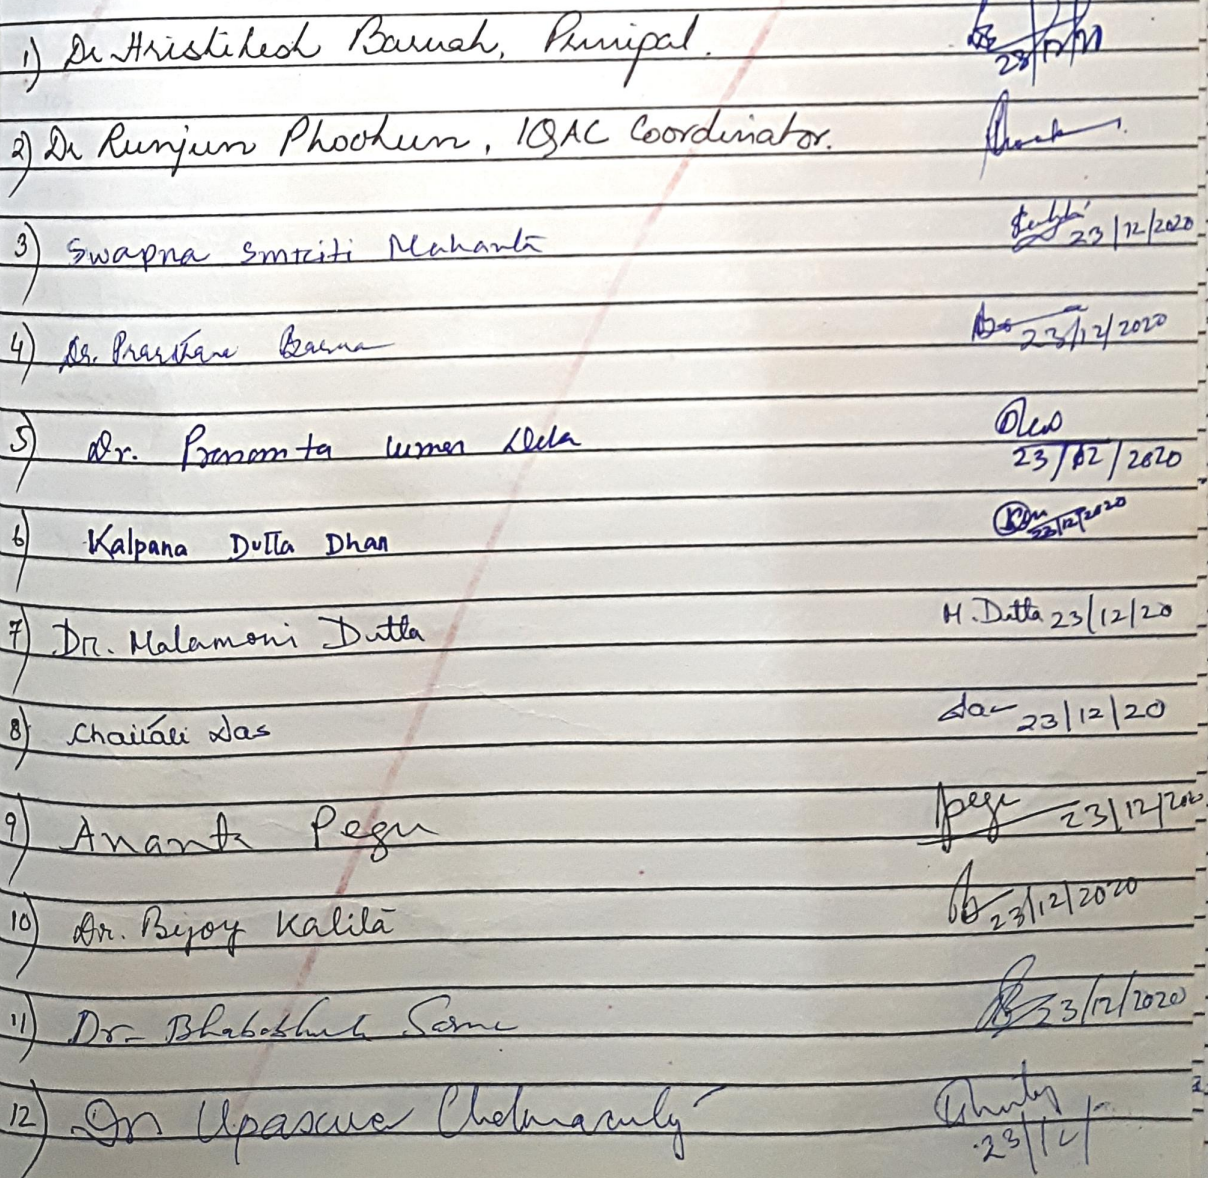 1) Dr Hrishikesh Baruah, Principal.
2) Dr Runjun Phookun, IQAC Coordinator. 
3) Swapna Smriti Mahanta 23/12/2020
4) Dr. Prarthana Barua 23/12/2020
5) Dr. 23/12/2020
6) Kalpana Dutta Dhan 23/12/2020
7) Dr. Malamoni Dutta M. Dutta 23/12/20
8) Chaitali Das Das 23/12/20
9) Ananta Pegu Pegu 23/12/2020
10) Dr. Bijoy Kalita 23/12/2020
11) Dr. 23/12/2020
12) Dr Upasana 23/12/